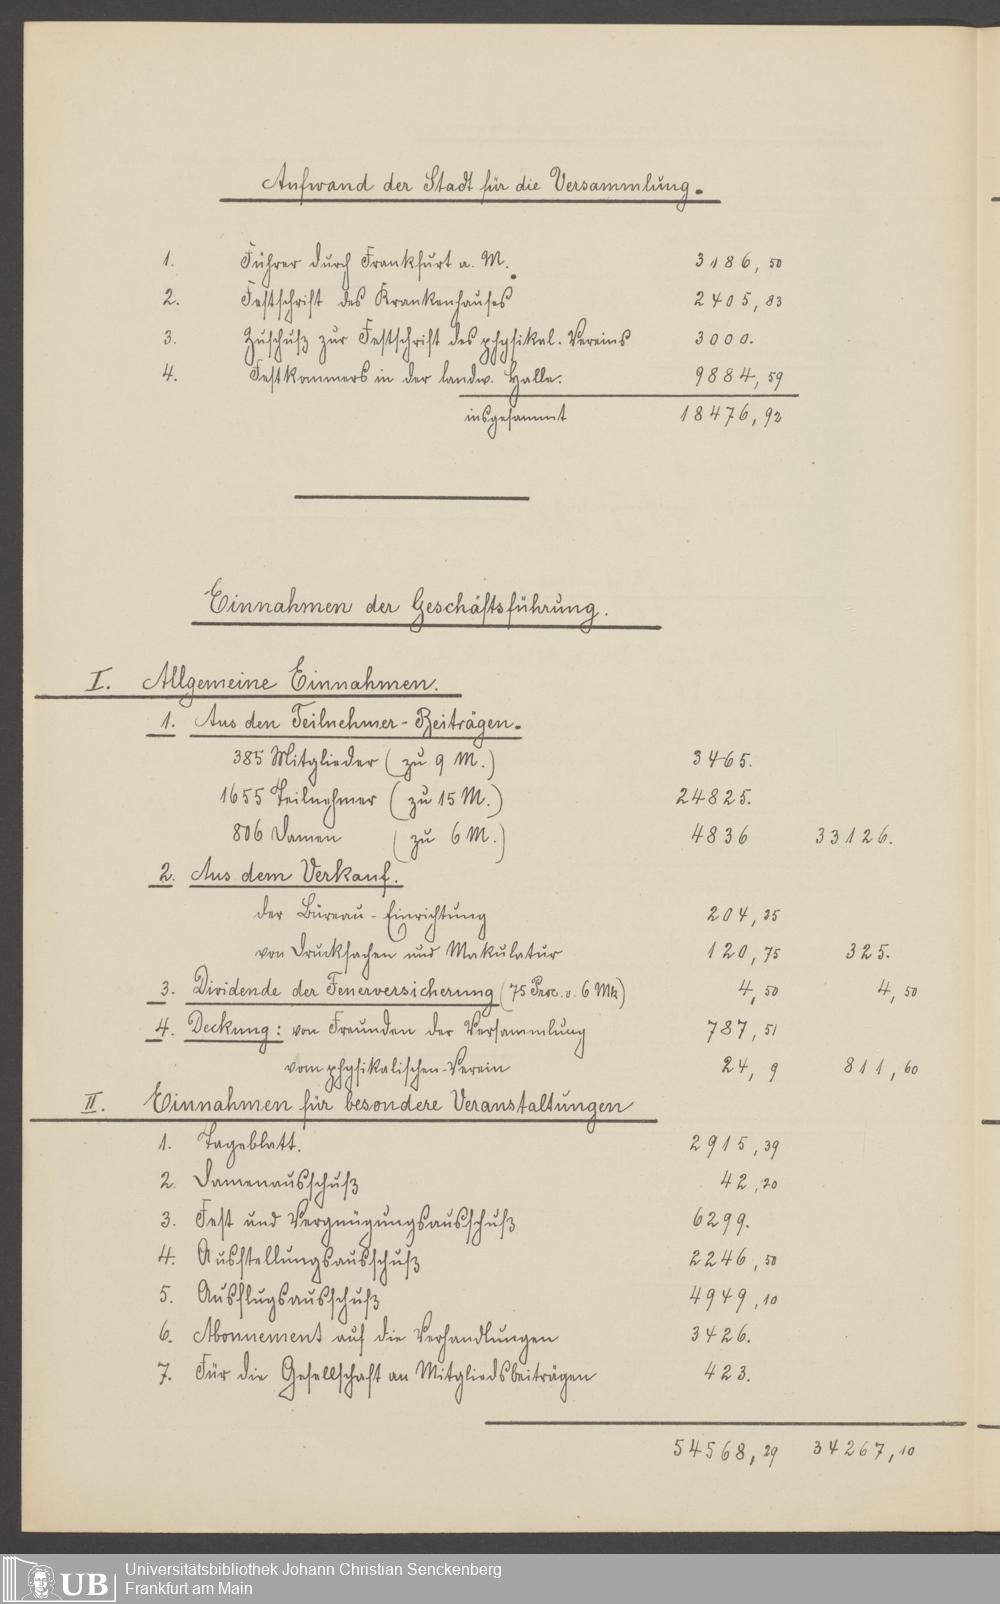 Aufwand der Stadt für die Versammlung.
1. Führer durch Frankfurt a. M. 3186,50
2. Festschrift des Krankenhauses 2405,83
3. Zuschuß zur Festschrift des physikal. Vereins 3000.
4. Festkommers in der landw. Halle. 9884,59
insgesammt 18476,92
Einnahmen der Geschäftsführung.
I. Allgemeine Einnahmen.
1. Aus den Teilnehmer-Beiträgen.
385 Mitglieder (zu 9 M.) 3465.
1655 Teilnehmer (zu 15 M.) 24825.
806 Damen (zu 6 M.) 4836 33126.
2. Aus dem Verkauf.
der Büreau-Einrichtung 204,25
von Drucksachen und Makulatur 120,75 325.
3. Dividende der Feuerversicherung (75 Proc. v. 6 Mk) 4,50 4,50
4. Deckung: von Freunden der Versammlung 787,51
vom physikalischen-Verein 24,9 811,60
II. Einnahmen für besondere Veranstaltungen
1. Tageblatt. 2915,39
2. Damenausschuß 42,20
3. Fest und Vergnügungsausschuß 6299.
4. Ausstellungsausschuß 2246,50
5. Ausflugsausschuß 4949,10
6. Abonnement auf die Verhandlungen 3426.
7. Für die Gesellschaft an Mitgliedsbeiträgen 423.
54568,29 34267,10
UB
Universitätsbibliothek Johann Christian Senckenberg
Frankfurt am Main